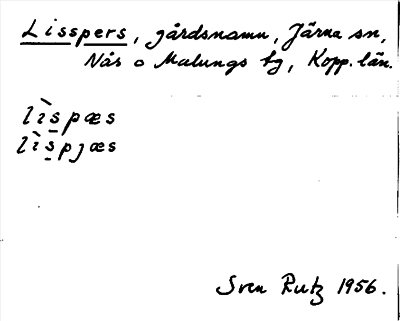 Lisspers, gårdsnamn, Järna sn,
Nås o Malungs tg, Kopp. län.
lìspæs
lìspjæs
Sven Rutz 1956.